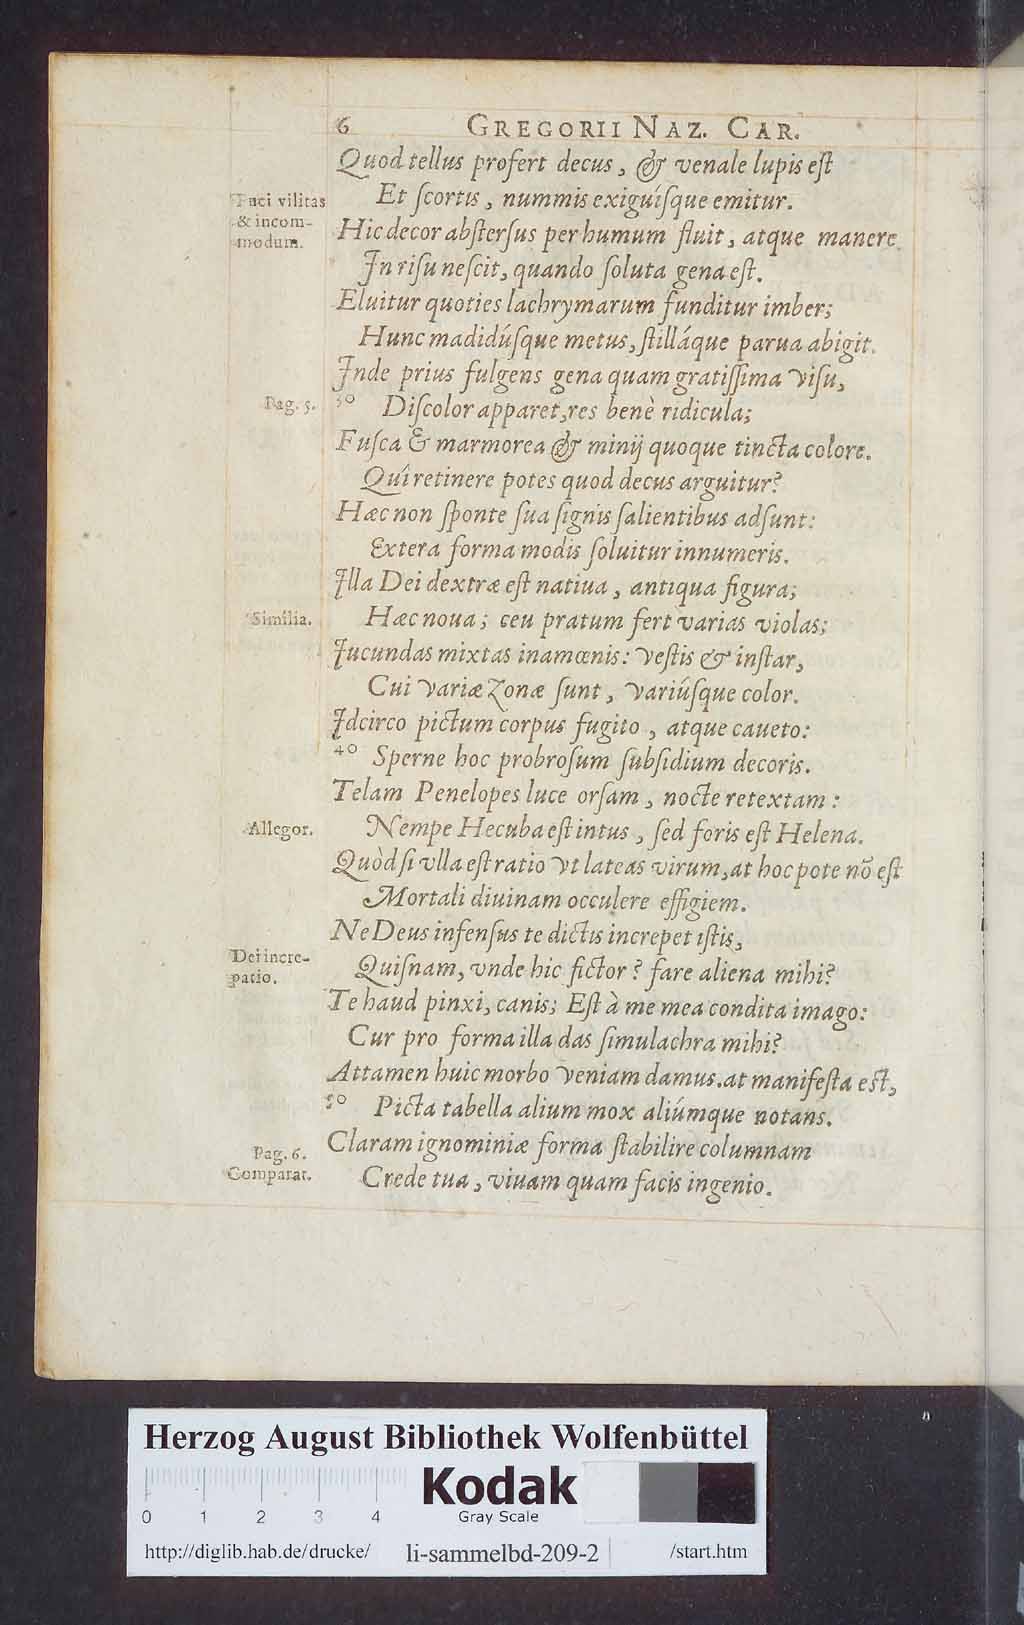 6 GREGORII NAZ. CAR.
Quod tellus profert decus, & venale lupis eſt
Fuci vilitas
& incom-
modum.
Et ſcortis, nummis exiguíſque emitur.
Hic decor abſterſus per humum fluit, atque manere
In riſu neſcit, quando ſoluta gena eſt.
Eluitur quoties lachrymarum funditur imber;
Hunc madidúſque metus, ſtilláque parua abigit.
Inde prius fulgens gena quam gratiſſima viſu,
Pag. 5.
30 Diſcolor apparet, res benè ridicula;
Fuſca & marmorea & minij quoque tincta colore.
Quî retinere potes quod decus arguitur?
Hæc non ſponte ſua ſignis ſalientibus adſunt:
Extera forma modis ſoluitur innumeris.
Illa Dei dextræ eſt natiua, antiqua figura;
Similia.
Hæc noua; ceu pratum fert varias violas;
Iucundas mixtas inamœnis: veſtis & inſtar,
Cui variæ zonæ ſunt, variúſque color.
Idcirco pictum corpus fugito, atque caueto:
40 Sperne hoc probroſum ſubſidium decoris.
Telam Penelopes luce orſam, nocte retextam:
Allegor.
Nempe Hecuba eſt intus, ſed foris eſt Helena.
Quòd ſi vlla eſt ratio vt lateas virum, at hoc pote nō eſt
Mortali diuinam occulere effigiem.
Ne Deus infenſus te dictis increpet iſtis,
Dei incre-
patio.
Quiſnam, vnde hic fictor? fare aliena mihi?
Te haud pinxi, canis; Eſt à me mea condita imago:
Cur pro forma illa das ſimulachra mihi?
Attamen huic morbo veniam damus. at manifeſta eſt,
50 Picta tabella alium mox aliúmque notans.
Claram ignominiæ forma ſtabilire columnam
Pag. 6.
Comparat.
Crede tua, viuam quam facis ingenio.
Herzog August Bibliothek Wolfenbüttel
Kodak
Gray Scale
0 1 2 3 4
http://diglib.hab.de/drucke/ li-sammelbd-209-2 /start.htm